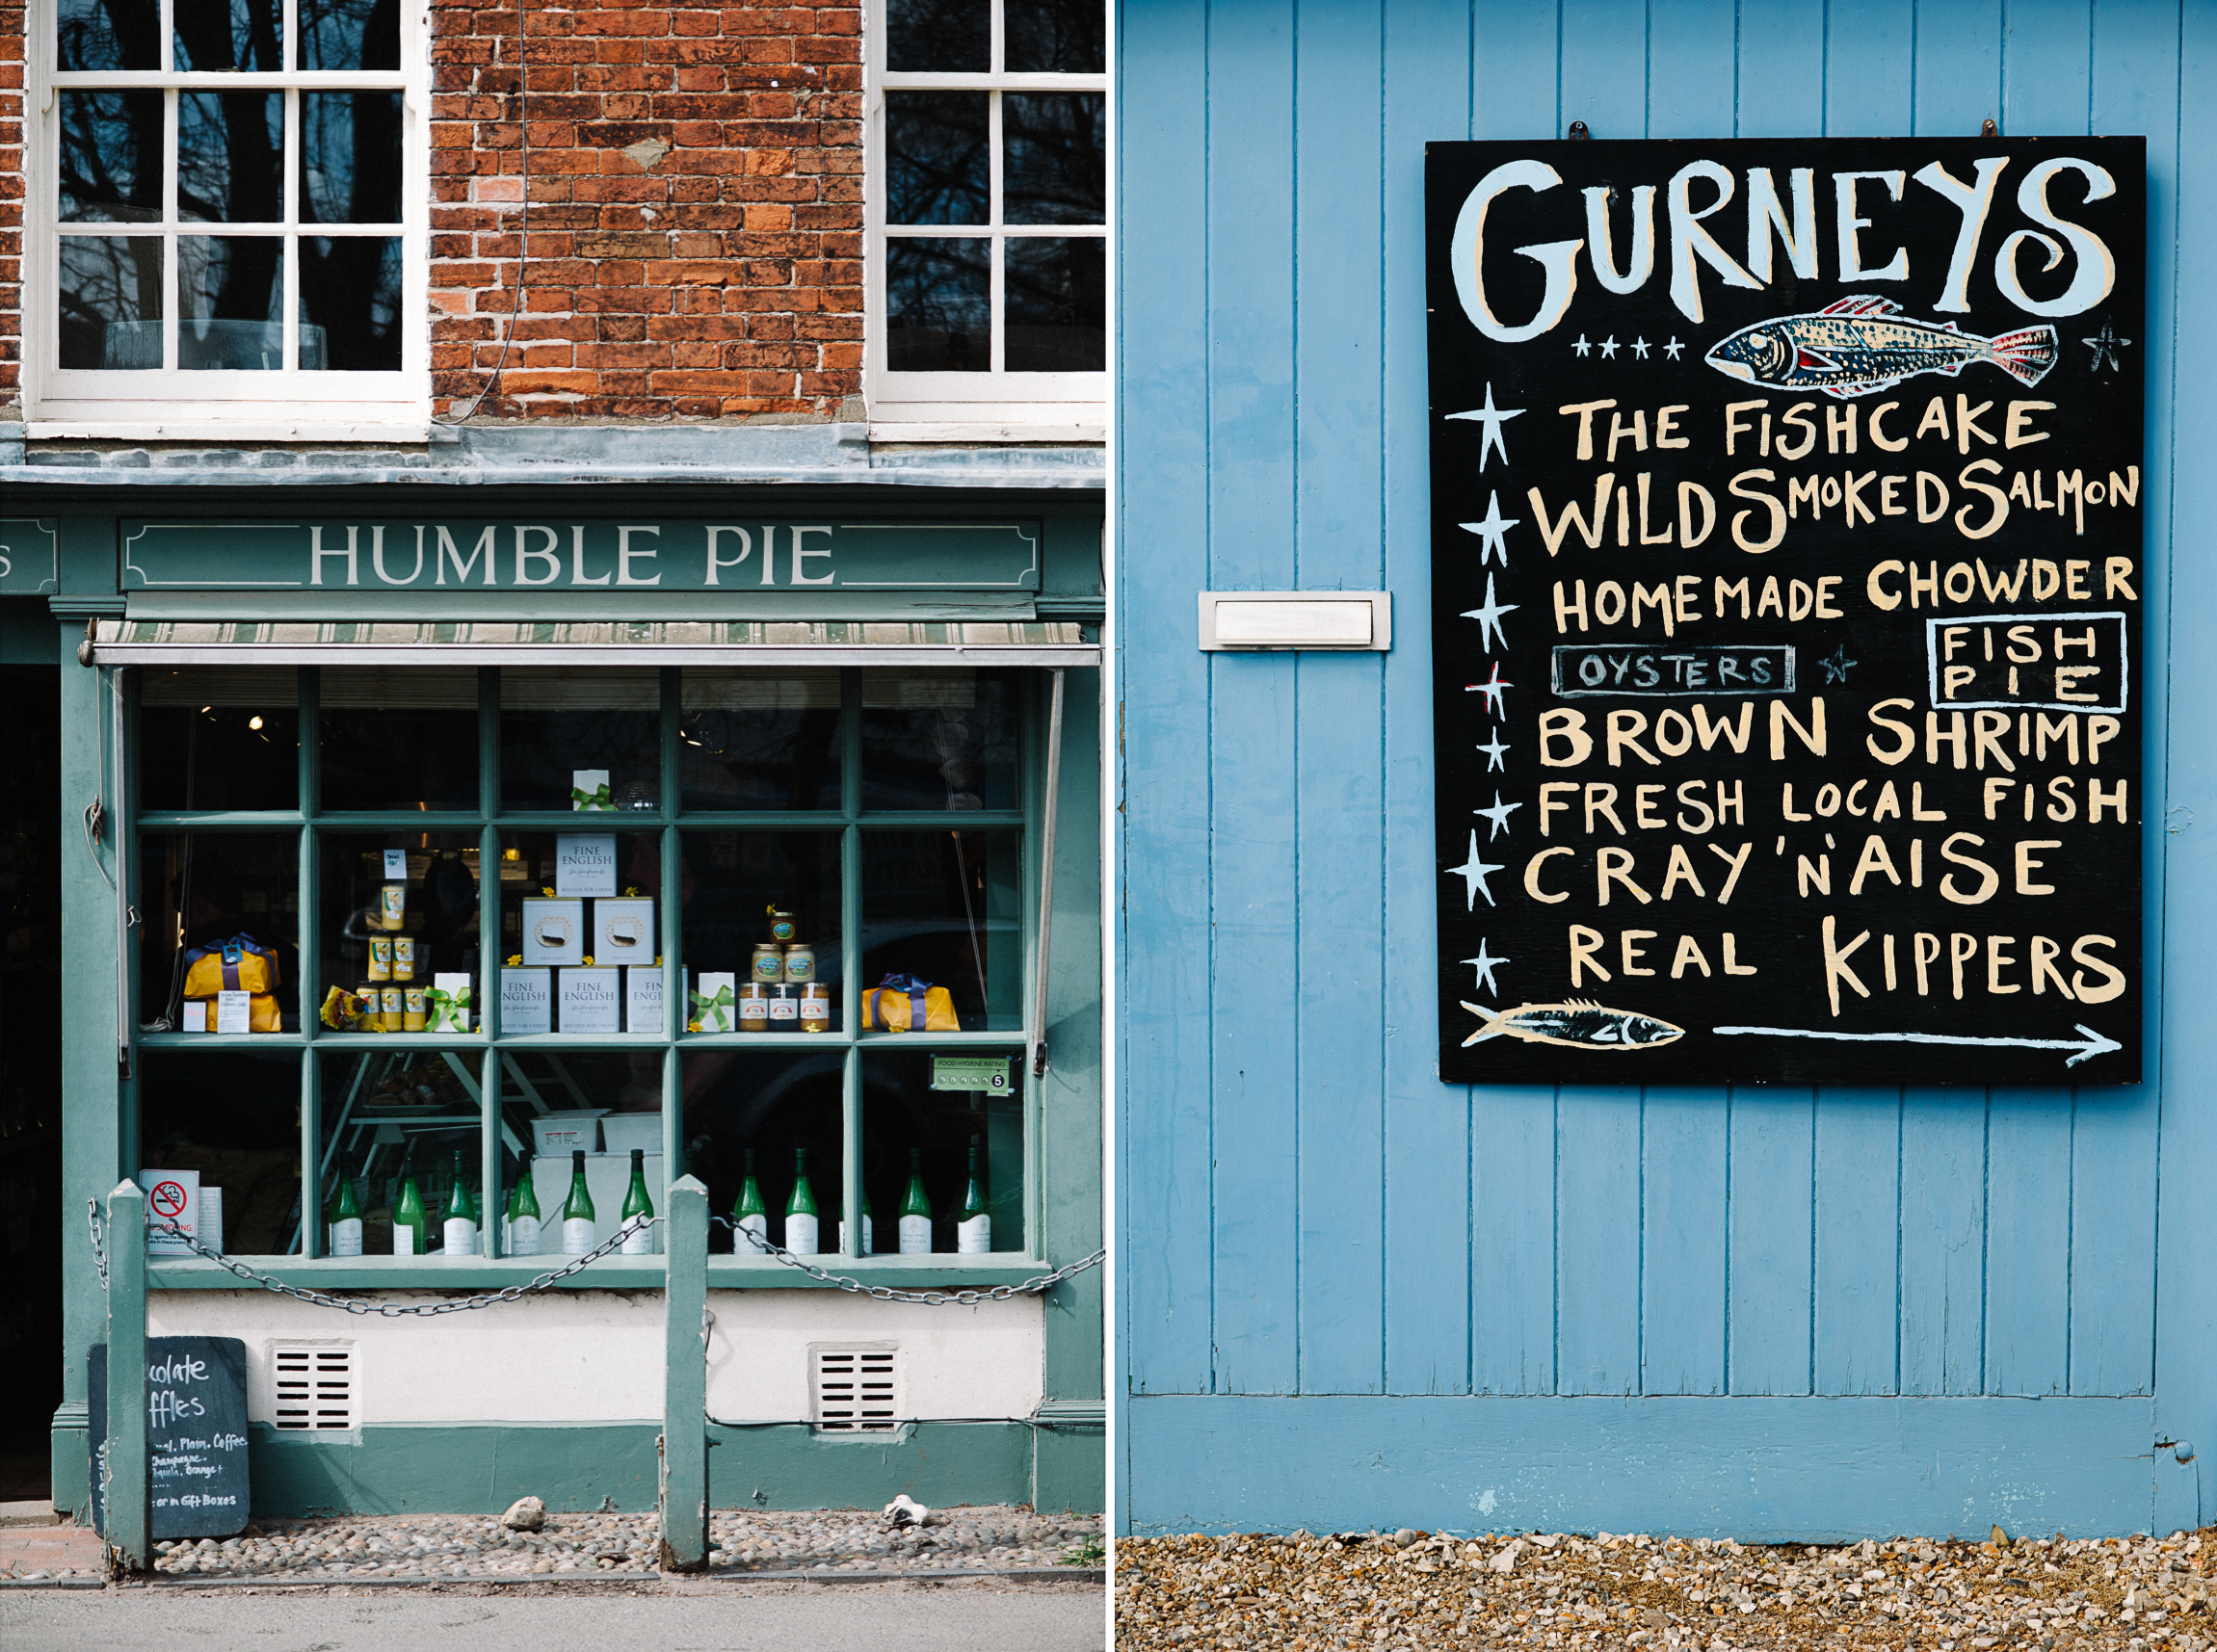 S
HUMBLE PIE
FINE
ENGLISH
BISCUITS FOR CHEESE
FINE
ENGLISH
FINE
ENGLISH
FOOD HYGIENE RATING
5
colate
ffles
Plain. Coffee
Champagne.
Orange +
or in Gift Boxes
GURNEYS
THE FISHCAKE
WILD SMOKED SALMON
HOMEMADE CHOWDER
OYSTERS
FISH
PIE
BROWN SHRIMP
FRESH LOCAL FISH
CRAY 'N' AISE
REAL KIPPERS